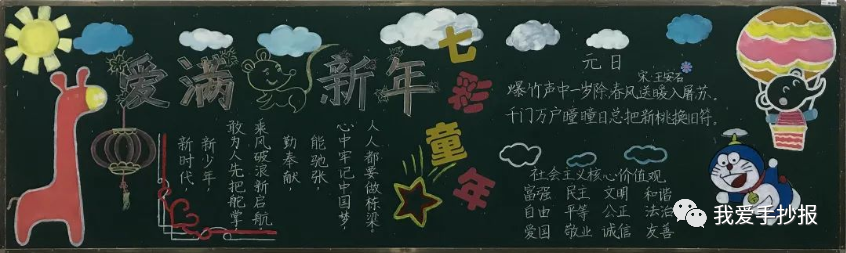 爱满新年
七彩童年
新时代，
新少年，
敢为人先把舵掌，
乘风破浪新启航，
勤奉献，
能驰张，
心中牢记中国梦，
人人都要做栋梁。
元日
宋:王安石
爆竹声中一岁除春风送暖入屠苏。
千门万户瞳瞳日总把新桃换旧符。
社会主义核心价值观
富强 民主 文明 和谐
自由 平等 公正 法治
爱国 敬业 诚信 友善
我爱手抄报